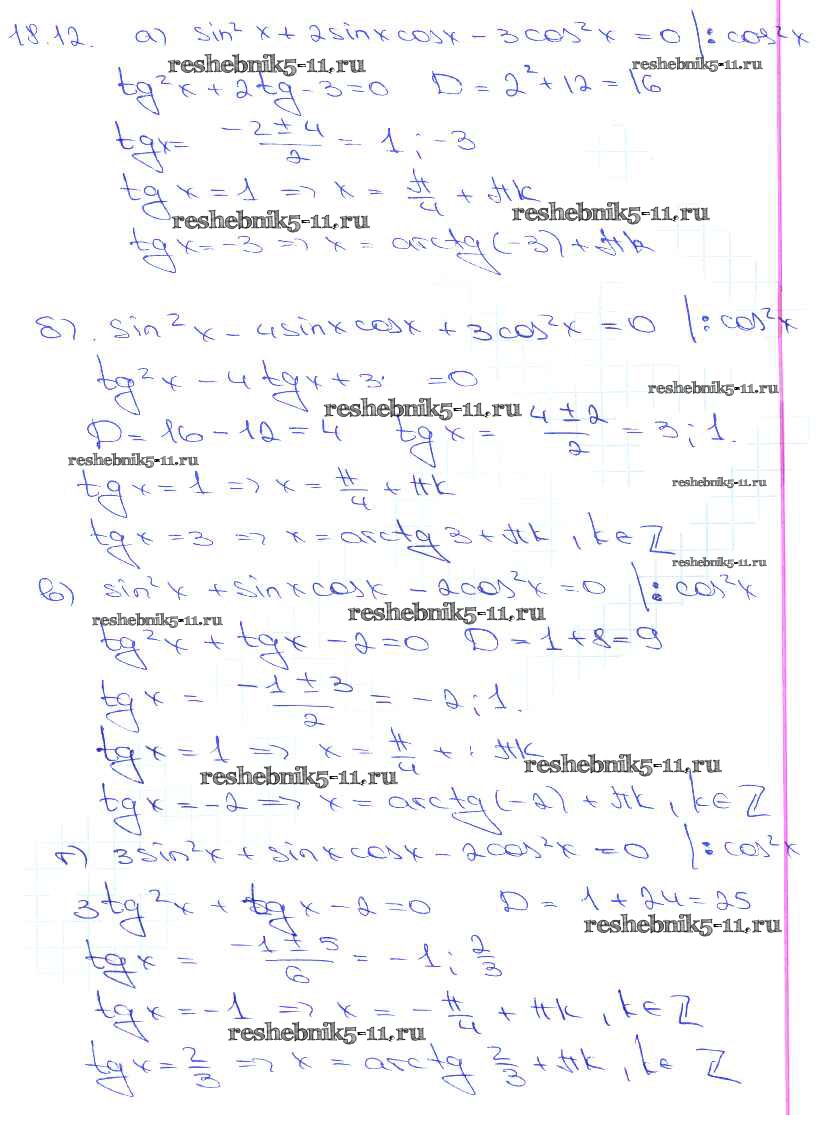 18.12. а) sin²x + 2sinxcosx - 3cos²x = 0 |: cos²x
reshebnik5-11.ru reshebnik5-11.ru
tg²x + 2tg - 3 = 0 D = 2² + 12 = 16
tgx = (-2 ± 4)/2 = 1 ; -3
tgx = 1 => x = π/4 + πk
reshebnik5-11.ru reshebnik5-11.ru
tgx = -3 => x = arctg(-3) + πk
б). sin²x - 4sinxcosx + 3cos²x = 0 |: cos²x
tg²x - 4tgx + 3 = 0
reshebnik5-11.ru
reshebnik5-11.ru
D = 16 - 12 = 4 tgx = (4 ± 2)/2 = 3 ; 1.
reshebnik5-11.ru
tgx = 1 => x = π/4 + πk
reshebnik5-11.ru
tgx = 3 => x = arctg 3 + πk , k ∈ Z
reshebnik5-11.ru
в) sin²x + sinxcosx - 2cos²x = 0 |: cos²x
reshebnik5-11.ru reshebnik5-11.ru
tg²x + tgx - 2 = 0 D = 1 + 8 = 9
tgx = (-1 ± 3)/2 = -2 ; 1.
tgx = 1 => x = π/4 + πk
reshebnik5-11.ru reshebnik5-11.ru
tgx = -2 => x = arctg(-2) + πk , k ∈ Z
г) 3sin²x + sinxcosx - 2cos²x = 0 |: cos²x
3tg²x + tgx - 2 = 0 D = 1 + 24 = 25
reshebnik5-11.ru
tgx = (-1 ± 5)/6 = -1 ; 2/3
tgx = -1 => x = -π/4 + πk , k ∈ Z
reshebnik5-11.ru
tgx = 2/3 => x = arctg 2/3 + πk , k ∈ Z